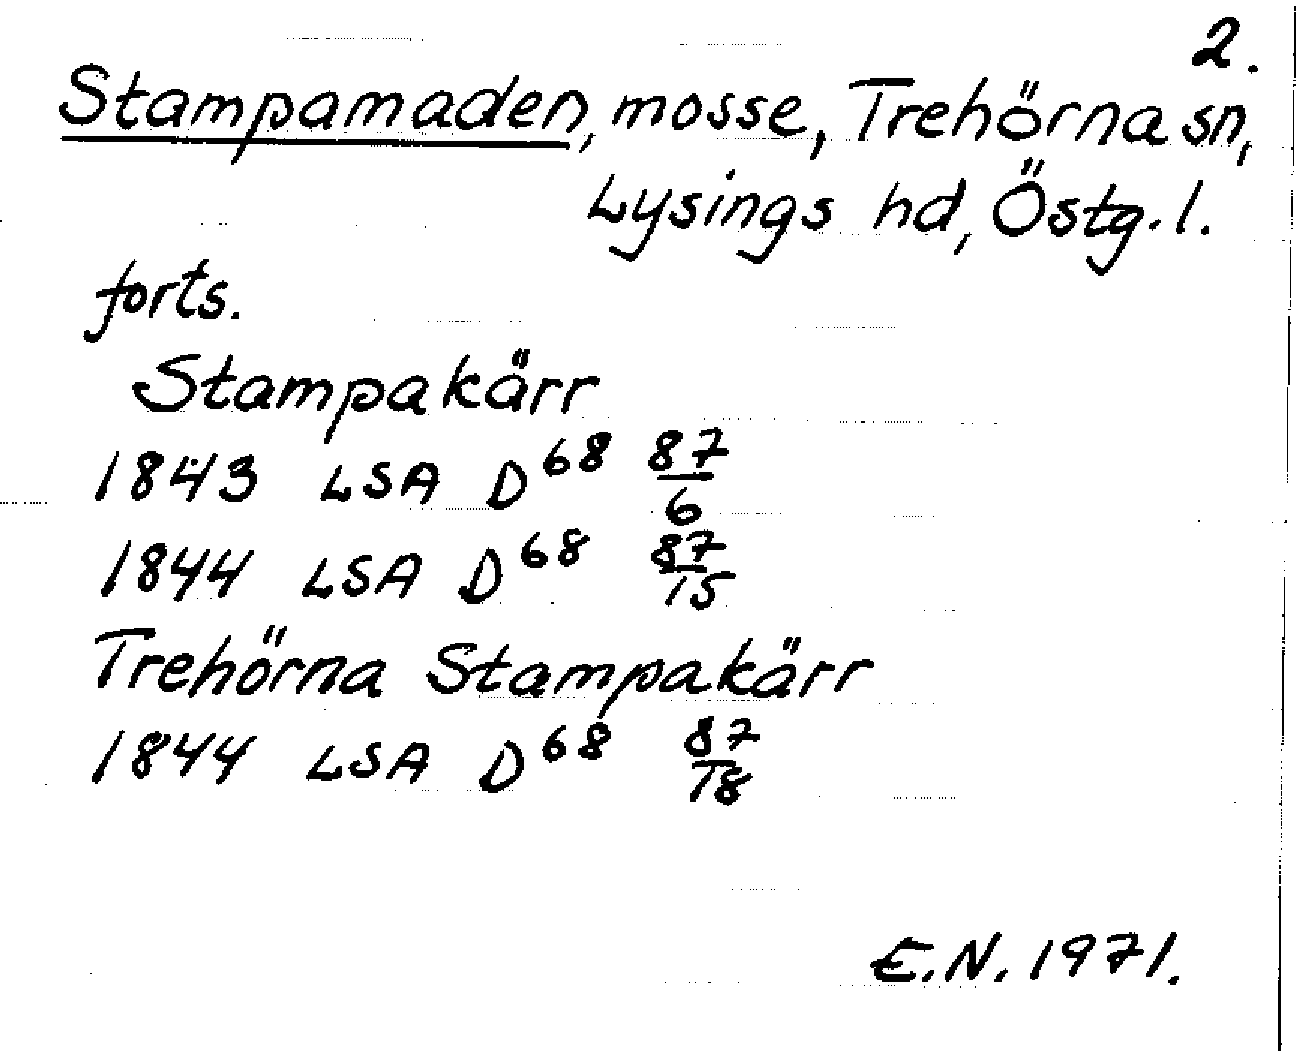 2.
Stampamaden, mosse, Trehörna sn,
Lysings hd, Östg.l.
forts.
Stampakärr
1843 LSA D⁶⁸ 87/6
1844 LSA D⁶⁸ 87/15
Trehörna Stampakärr
1844 LSA D⁶⁸ 87/18
E.N. 1971.